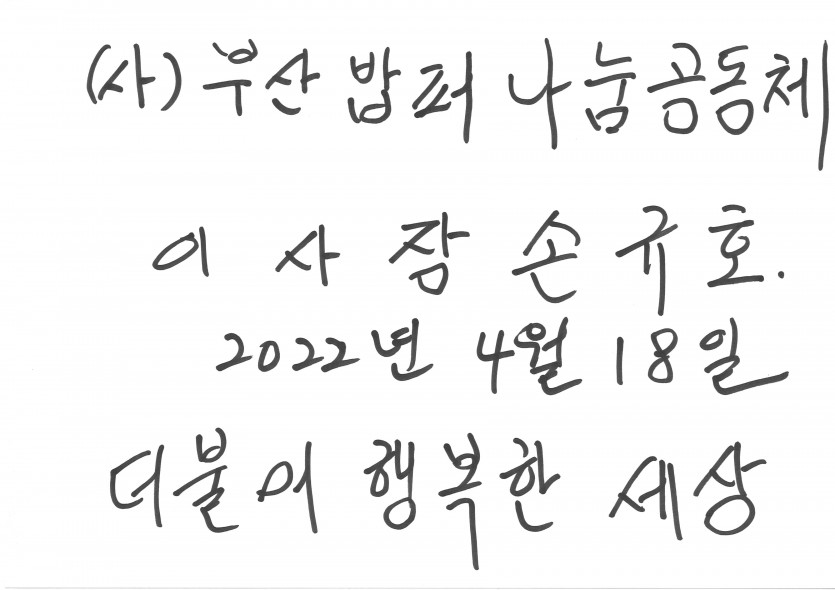 (사) 부산 밥퍼 나눔공동체
이 사 장 손 규 호.
2022년 4월 18일
더불어 행복한 세상